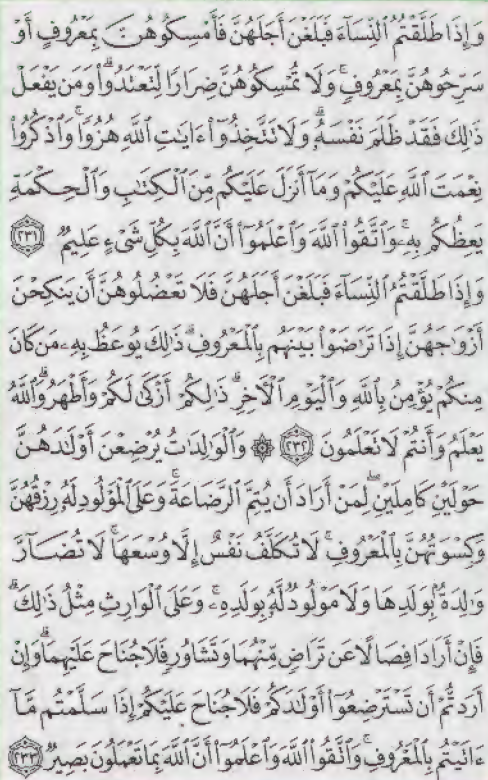 وَإِذَا طَلَّقْتُمُ ٱلنِّسَآءَ فَبَلَغْنَ أَجَلَهُنَّ فَأَمْسِكُوهُنَّ بِمَعْرُوفٍ أَوْ
سَرِّحُوهُنَّ بِمَعْرُوفٍۚ وَلَا تُمْسِكُوهُنَّ ضِرَارًا لِّتَعْتَدُوا۟ۚ وَمَن يَفْعَلْ
ذَٰلِكَ فَقَدْ ظَلَمَ نَفْسَهُۥۚ وَلَا تَتَّخِذُوٓا۟ ءَايَٰتِ ٱللَّهِ هُزُوًاۚ وَٱذْكُرُوا۟
نِعْمَتَ ٱللَّهِ عَلَيْكُمْ وَمَآ أَنزَلَ عَلَيْكُم مِّنَ ٱلْكِتَٰبِ وَٱلْحِكْمَةِ
يَعِظُكُم بِهِۦۚ وَٱتَّقُوا۟ ٱللَّهَ وَٱعْلَمُوٓا۟ أَنَّ ٱللَّهَ بِكُلِّ شَىْءٍ عَلِيمٌ ٢٣١
وَإِذَا طَلَّقْتُمُ ٱلنِّسَآءَ فَبَلَغْنَ أَجَلَهُنَّ فَلَا تَعْضُلُوهُنَّ أَن يَنكِحْنَ
أَزْوَٰجَهُنَّ إِذَا تَرَٰضَوْا۟ بَيْنَهُم بِٱلْمَعْرُوفِۗ ذَٰلِكَ يُوعَظُ بِهِۦ مَن كَانَ
مِنكُمْ يُؤْمِنُ بِٱللَّهِ وَٱلْيَوْمِ ٱلْءَاخِرِۗ ذَٰلِكُمْ أَزْكَىٰ لَكُمْ وَأَطْهَرُۗ وَٱللَّهُ
يَعْلَمُ وَأَنتُمْ لَا تَعْلَمُونَ ٢٣٢ ۞ وَٱلْوَٰلِدَٰتُ يُرْضِعْنَ أَوْلَٰدَهُنَّ
حَوْلَيْنِ كَامِلَيْنِۖ لِمَنْ أَرَادَ أَن يُتِمَّ ٱلرَّضَاعَةَۚ وَعَلَى ٱلْمَوْلُودِ لَهُۥ رِزْقُهُنَّ
وَكِسْوَتُهُنَّ بِٱلْمَعْرُوفِۚ لَا تُكَلَّفُ نَفْسٌ إِلَّا وُسْعَهَاۚ لَا تُضَآرَّ
وَٰلِدَةٌۢ بِوَلَدِهَا وَلَا مَوْلُودٌ لَّهُۥ بِوَلَدِهِۦۚ وَعَلَى ٱلْوَارِثِ مِثْلُ ذَٰلِكَۗ
فَإِنْ أَرَادَا فِصَالًا عَن تَرَاضٍ مِّنْهُمَا وَتَشَاوُرٍ فَلَا جُنَاحَ عَلَيْهِمَاۗ وَإِنْ
أَرَدتُّمْ أَن تَسْتَرْضِعُوٓا۟ أَوْلَٰدَكُمْ فَلَا جُنَاحَ عَلَيْكُمْ إِذَا سَلَّمْتُم مَّآ
ءَاتَيْتُم بِٱلْمَعْرُوفِۗ وَٱتَّقُوا۟ ٱللَّهَ وَٱعْلَمُوٓا۟ أَنَّ ٱللَّهَ بِمَا تَعْمَلُونَ بَصِيرٌ ٢٣٣